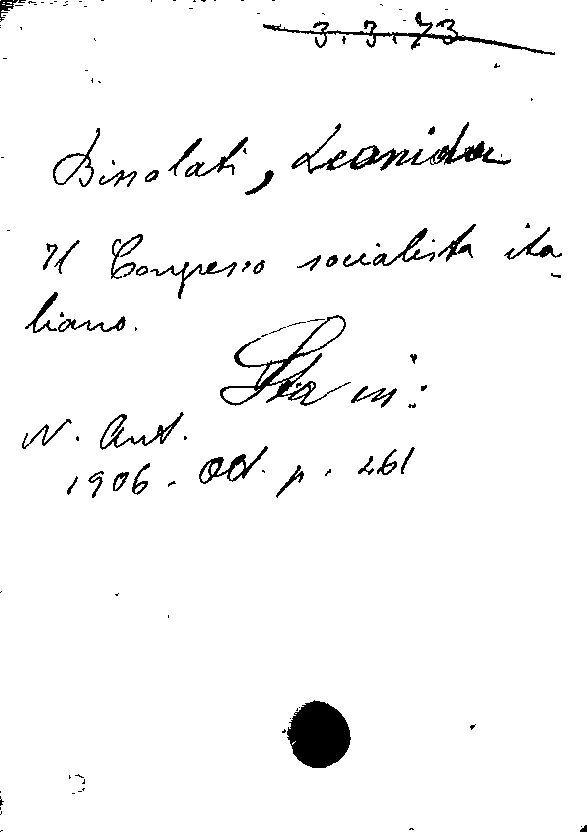 3.3.73
Bissolati, Leonida
Il Congresso socialista ita-
liano.
Sta in:
N. Ant.
1906. Ott. p. 261